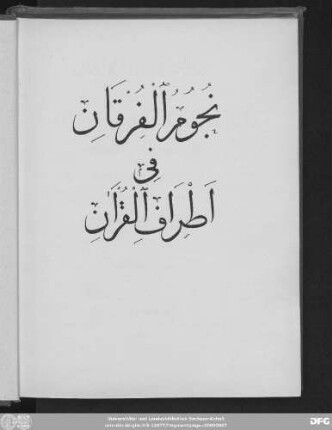 نُجُومُ ٱلْفُرْقَانِ
فِى
اَطْرَافِ ٱلْقُرْاٰنِ
Universitäts- und Landesbibliothek Sachsen-Anhalt
DFG